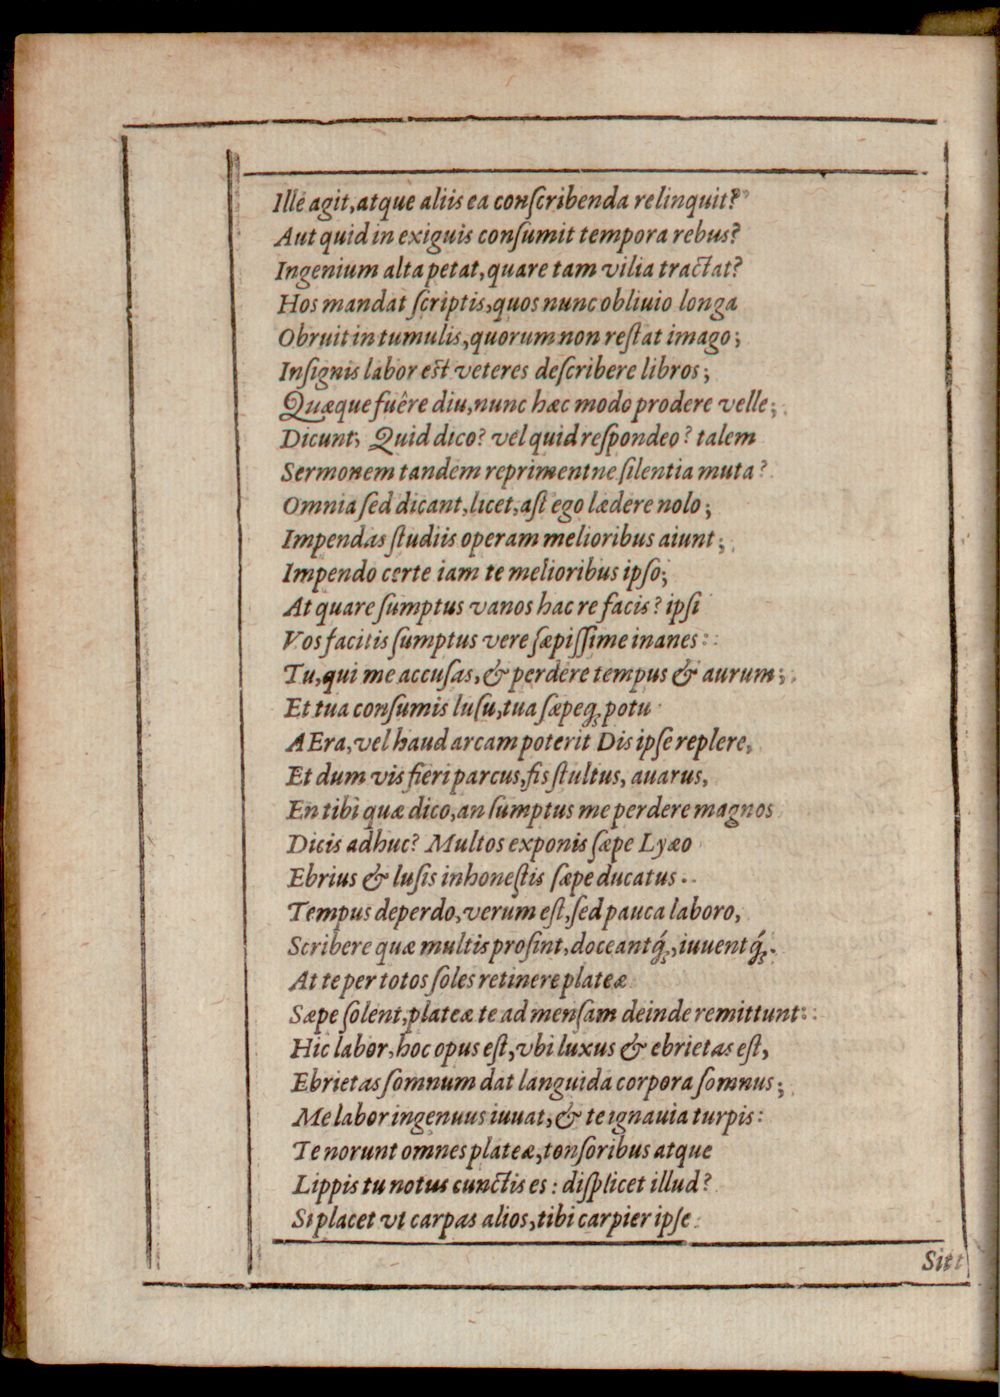 Ille agit, atque aliis ea conſcribenda relinquit?
Aut quid in exiguis conſumit tempora rebus?
Ingenium alta petat, quare tam vilia tractat?
Hos mandat ſcriptis, quos nunc obliuio longa
Obruit in tumulis, quorum non reſtat imago;
Inſignis labor est veteres deſcribere libros;
Quæque fuêre diu, nunc hæc modo prodere velle;
Dicunt; Quid dico? vel quid reſpondeo? talem
Sermonem tandem reprimentne ſilentia muta?
Omnia ſed dicant, licet, aſt ego lædere nolo;
Impendas ſtudiis operam melioribus aiunt;
Impendo certe iam te melioribus ipſo;
At quare ſumptus vanos hac re facis? ipſi
Vos facitis ſumptus vere ſæpiſſime inanes:
Tu, qui me accuſas, & perdere tempus & aurum;
Et tua conſumis luſu, tua ſæpeq; potu
AEra, vel haud arcam poterit Dis ipſe replere,
Et dum vis fieri parcus, fis ſtultus, auarus,
En tibi quæ dico, an ſumptus me perdere magnos
Dicis adhuc? Multos exponis ſæpe Lyæo
Ebrius & luſis inhoneſtis ſæpe ducatus.
Tempus deperdo, verum eſt, ſed pauca laboro,
Scribere quæ multis proſint, doceantq́;, iuuentq́;.
At te per totos ſoles retinere plateæ
Sæpe ſolent, plateæ te ad menſam deinde remittunt:
Hic labor, hoc opus eſt, vbi luxus & ebrietas eſt,
Ebrietas ſomnum dat languida corpora ſomnus;
Me labor ingenuus iuuat, & te ignauia turpis:
Te norunt omnes plateæ, tonſoribus atque
Lippis tu notus cunctis es: diſplicet illud?
Si placet vt carpas alios, tibi carpier ipſe
Sitt